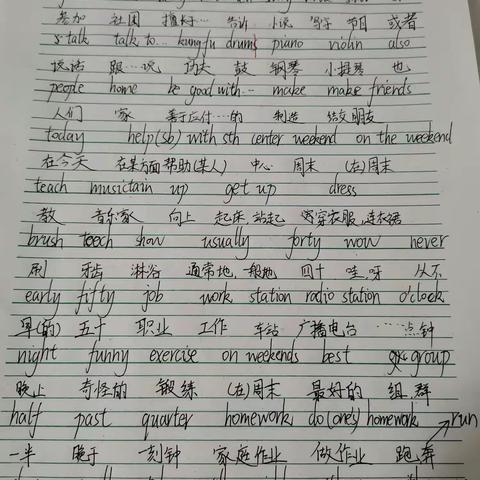 参加 社团 擅长… 告诉 小说 写字 节目 或者
s talk talk to… kungfu drums piano violin also
说话 跟…说 功夫 鼓 钢琴 小提琴 也
people home be good with… make make friends
人们 家 善于应付…的 制造 结交朋友
today help(sb) with sth center weekend on the weekend
在今天 在某方面帮助(某人) 中心 周末 (在)周末
teach musictain up get up dress
教 音乐家 向上 起床,站起 穿衣服,连衣裙
brush teech show usually forty wow never
刷 牙齿 淋浴 通常地,一般地 四十 哇,呀 从不
early fifty job work station radio station o'clock
早(的) 五十 职业 工作 车站 广播电台 …点钟
night funny exercise on weekends best group
晚上 奇怪的 锻练 (在)周末 最好的 组,群
half past quarter homework do(one's) homework run
一半 晚于 一刻钟 家庭作业 做作业 跑,奔